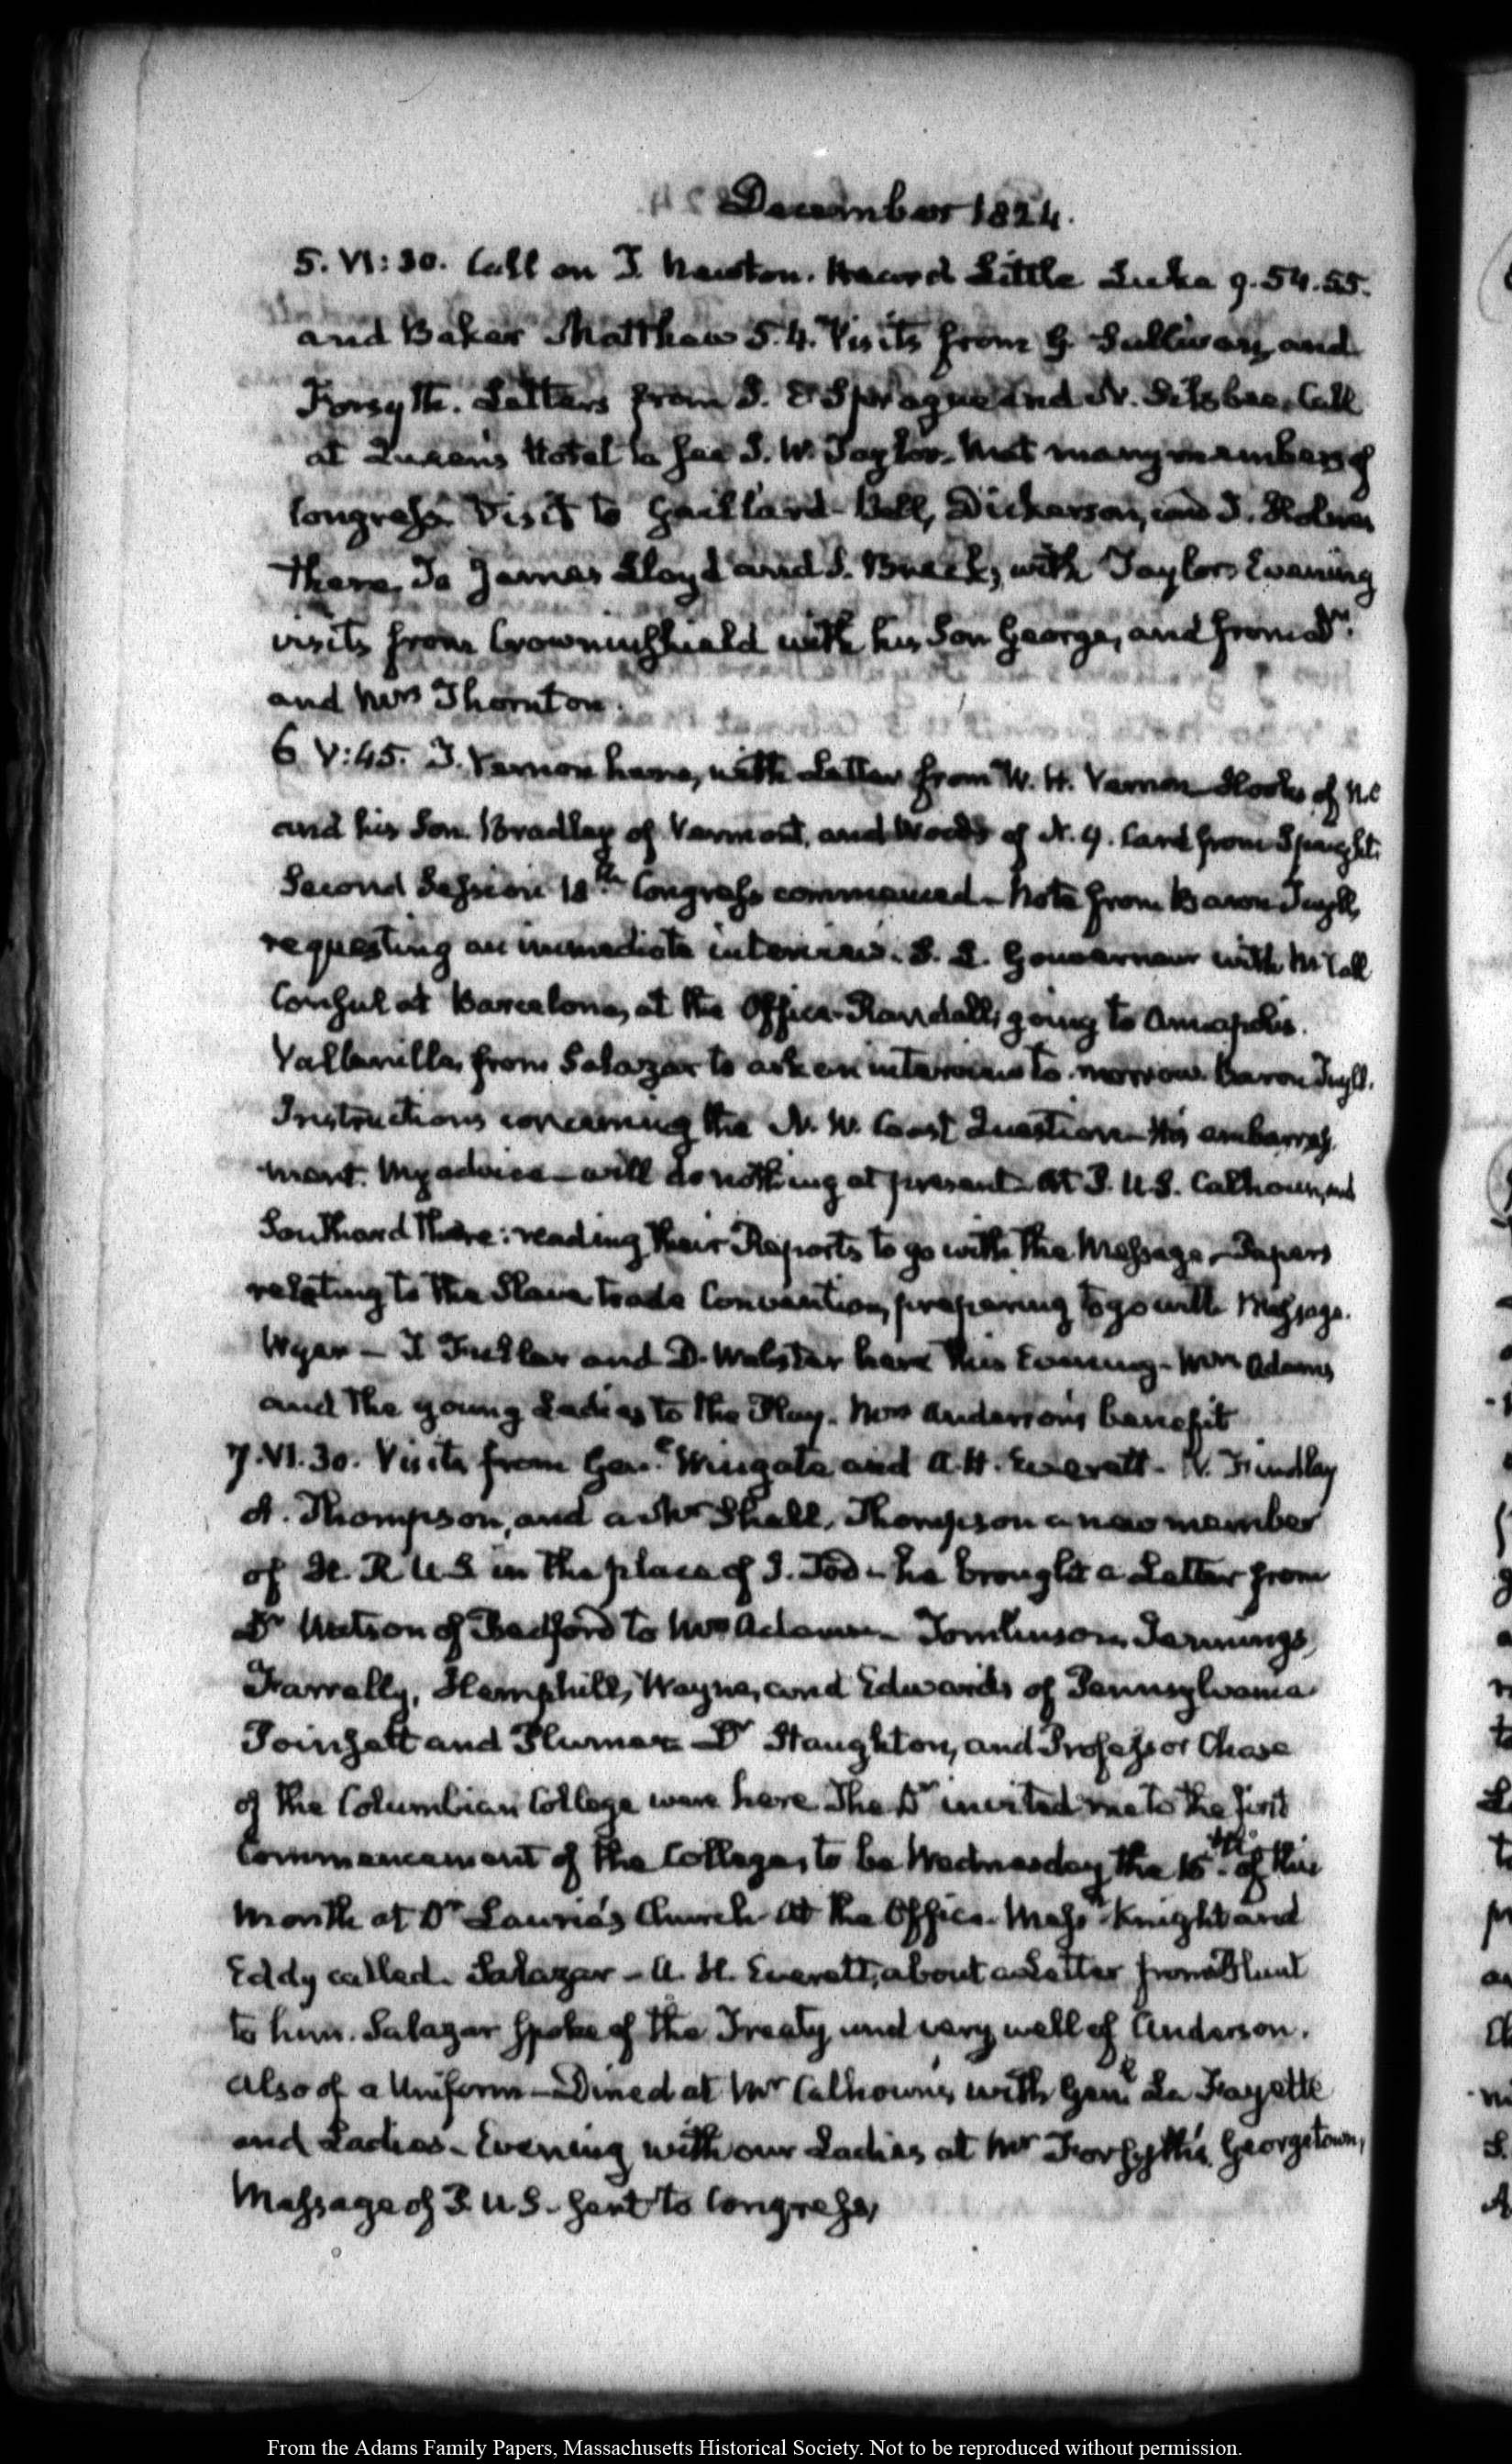 December 1824.
5. VI:30. Call on T. Newton. Heard Little Luke 9.54.55.
and Baker Matthew 5.4. Visits from G. Sullivan, and
Forsyth. Letters from J. E Sprague and N. Silsbee. Call
at Queen's Hotel to see J. W. Taylor. Met many members of
Congress. Visit to Gaillard. Bell, Dickerson, and J. Holmes
there. To James Lloyd and S. Breck, with Taylor. Evening
visits from Crowninshield with his Son George, and from Dr.
and Mrs Thornton.
6 V:45. T. Vernon here, with Letter from W. H. Vernon Hooks of N.C
and his Son. Bradley of Vermont, and Woods of N.Y. Card from Spaight.
Second Session 18th Congress commenced. Note from Baron Tuyll,
requesting an immediate interview. S. L. Gouverneur with McCall
Consul at Barcelona, at the Office. Randall, going to Annapolis.
Vallenilla, from Salazar to ask an interview to-morrow. Baron Tuyll.
Instructions concerning the N. W. Coast Question. His embarrass
ment. My advice—will do nothing at present. At P. U.S. Calhoun, and
Southard there: reading their Reports to go with the Message. Papers
relating to the Slave trade Convention, preparing to go with Message.
Wyer — T Fuller and D. Webster here this Evening. Mrs Adams
and the young Ladies to the Play. Mrs Anderson's benefit
7. VI.30. Visits from Genl. Wingate and A. H. Everett. W. Findlay
A. Thompson, and a Mr Shall. Thompson a new member
of H. R U.S in the place of J. Tod. he brought a Letter from
Dr Watson of Bedford to Mrs Adams. Tomlinson, Jennings,
Farrelly, Hemphill, Wayne, and Edwards of Pennsylvania
Poinsett and Plumer. Dr Staughton, and Professor Chase
of the Columbian College were here. The Dr invited me to the first
Commencement of the College, to be Wednesday the 15th. of this
Month at Dr Laurie's Church. At the Office. Messrs Knight and
Eddy called. Salazar — A. H. Everett, about a Letter from Blunt
to him. Salazar spoke of the Treaty, and very well of Anderson.
also of a Uniform—Dined at Mr Calhoun's with Genl La Fayette
and Ladies. Evening with our Ladies at Mr Forsyth's Georgetown,
Message of P. U.S. sent to Congress,
From the Adams Family Papers, Massachusetts Historical Society. Not to be reproduced without permission.